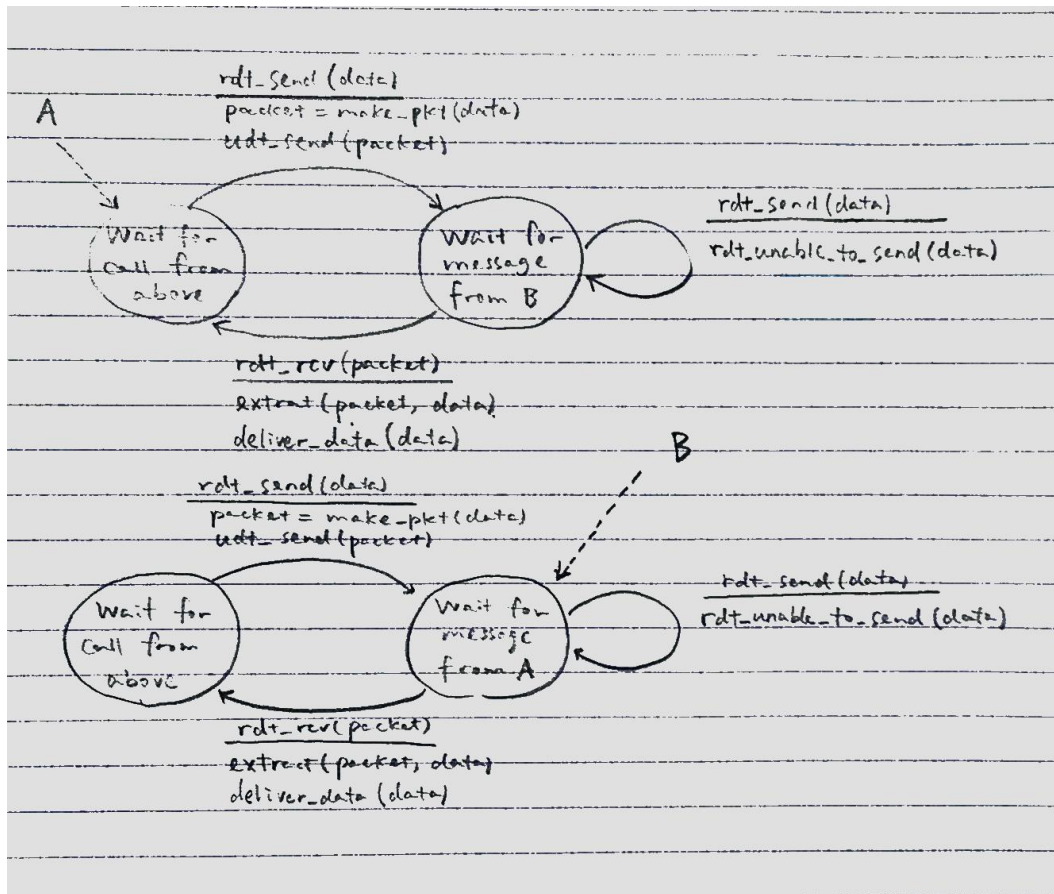 rdt_send(data)
packet = make_pkt(data)
udt_send(packet)
A
Wait for
call from
above
Wait for
message
from B
rdt_send(data)
rdt_unable_to_send(data)
rdt_rcv(packet)
extrat(packet, data)
deliver_data(data)
B
rdt_send(data)
packet = make_pkt(data)
udt_send(packet)
Wait for
call from
above
Wait for
message
from A
rdt_send(data)
rdt_unable_to_send(data)
rdt_rcv(packet)
extract(packet, data)
deliver_data(data)